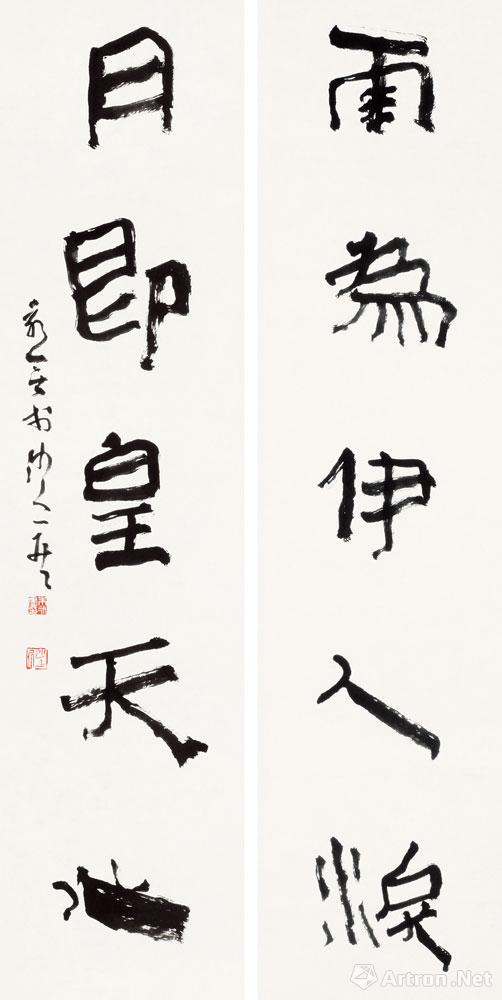 雨為伊人淚
月即皇天心
Artron.Net